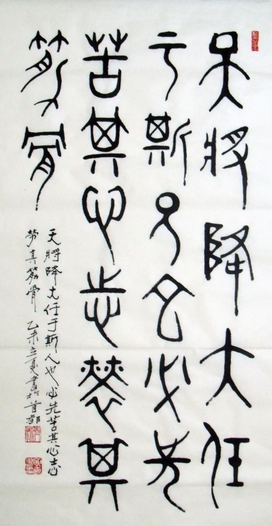 天將降大任
于斯人也必先
苦其心志勞其
筋骨
天將降大任于斯人也必先苦其心志
勞其筋骨 乙未立夏書於首都